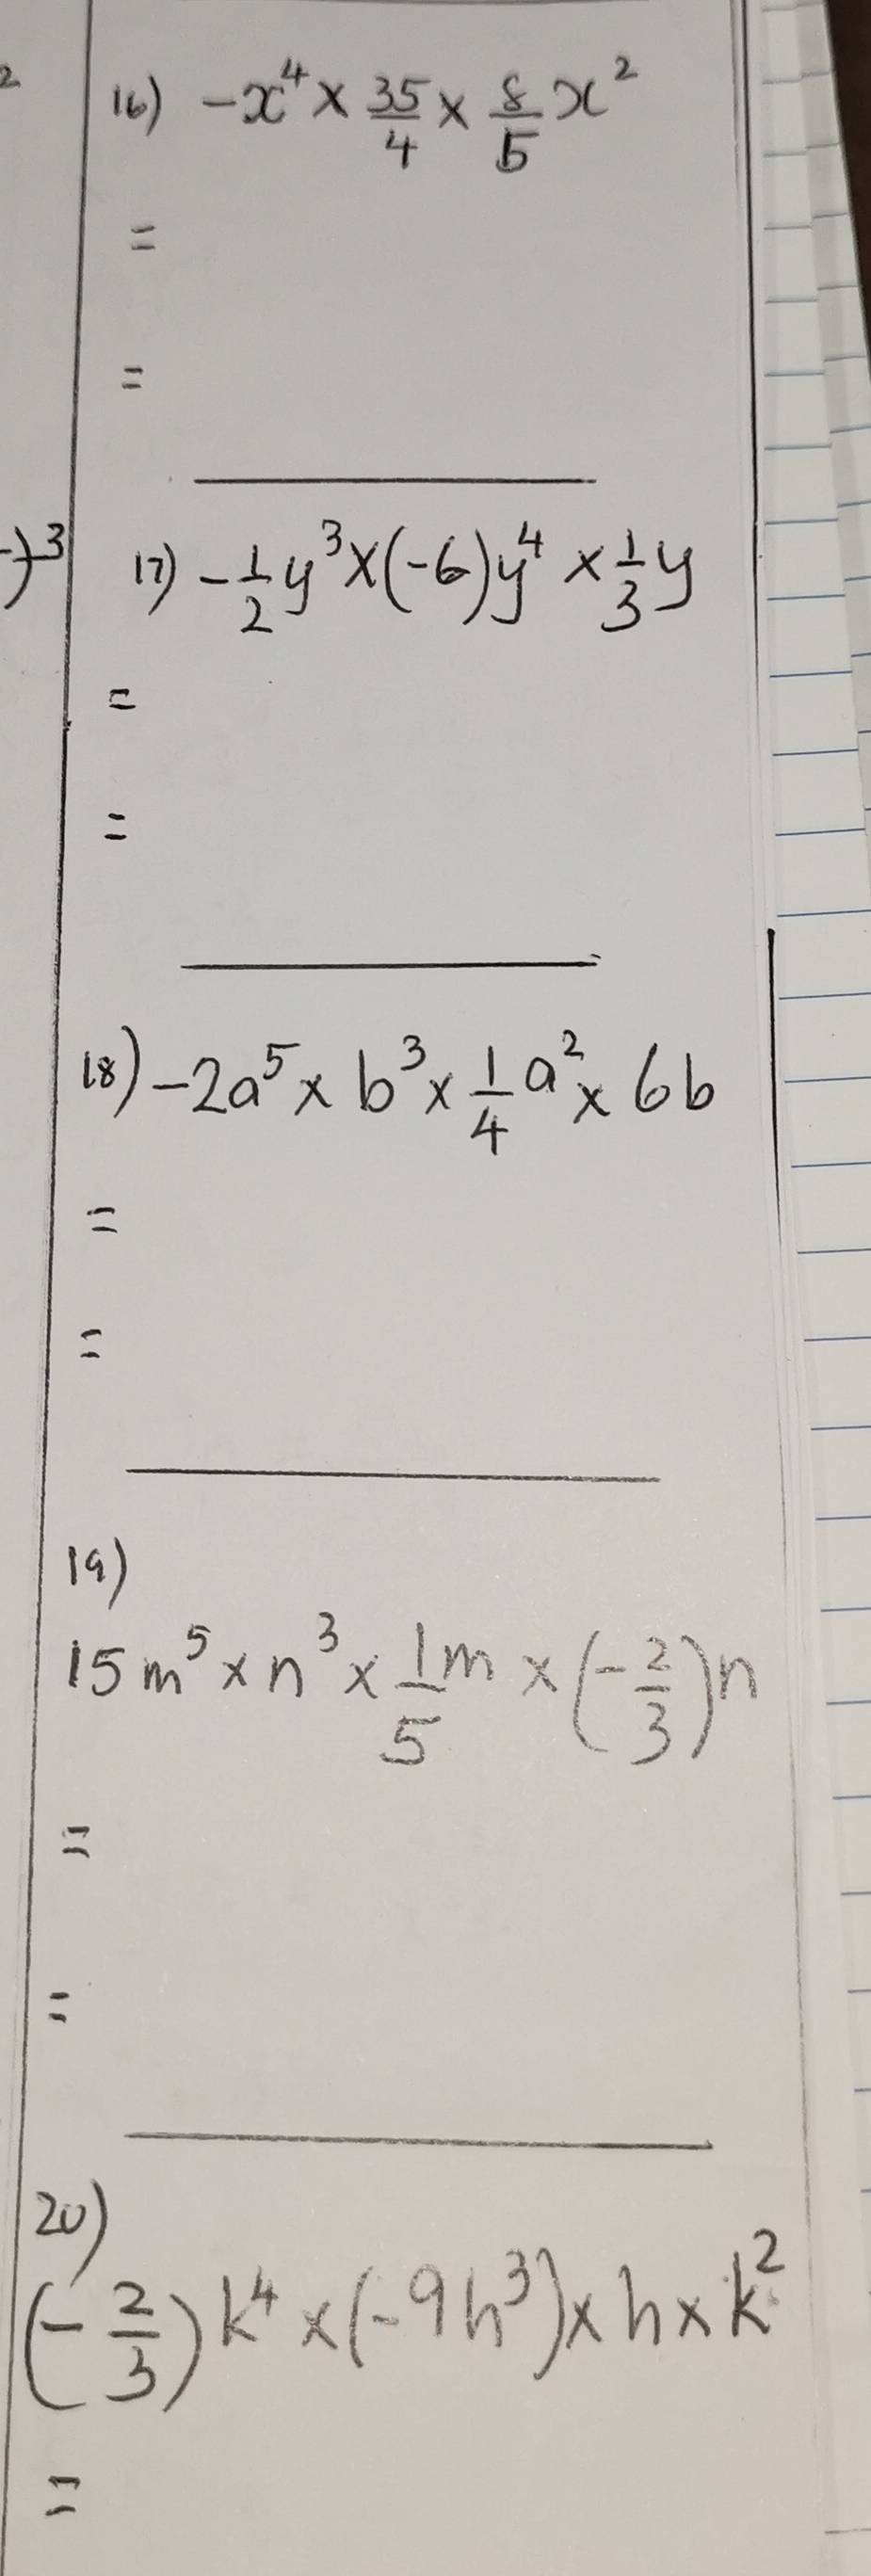 2
16) -x⁴ × 35/4 × 8/5 x²
=
=
-)³
17) -1/2 y³ × (-6)y⁴ × 1/3 y
=
=
18) -2a⁵ × b³ × 1/4 a² × 6b
=
=
19)
15m⁵ × n³ × 1/5 m × (-2/3)n
=
=
20)
(-2/3)k⁴ × (-9h³) × h × k²
=